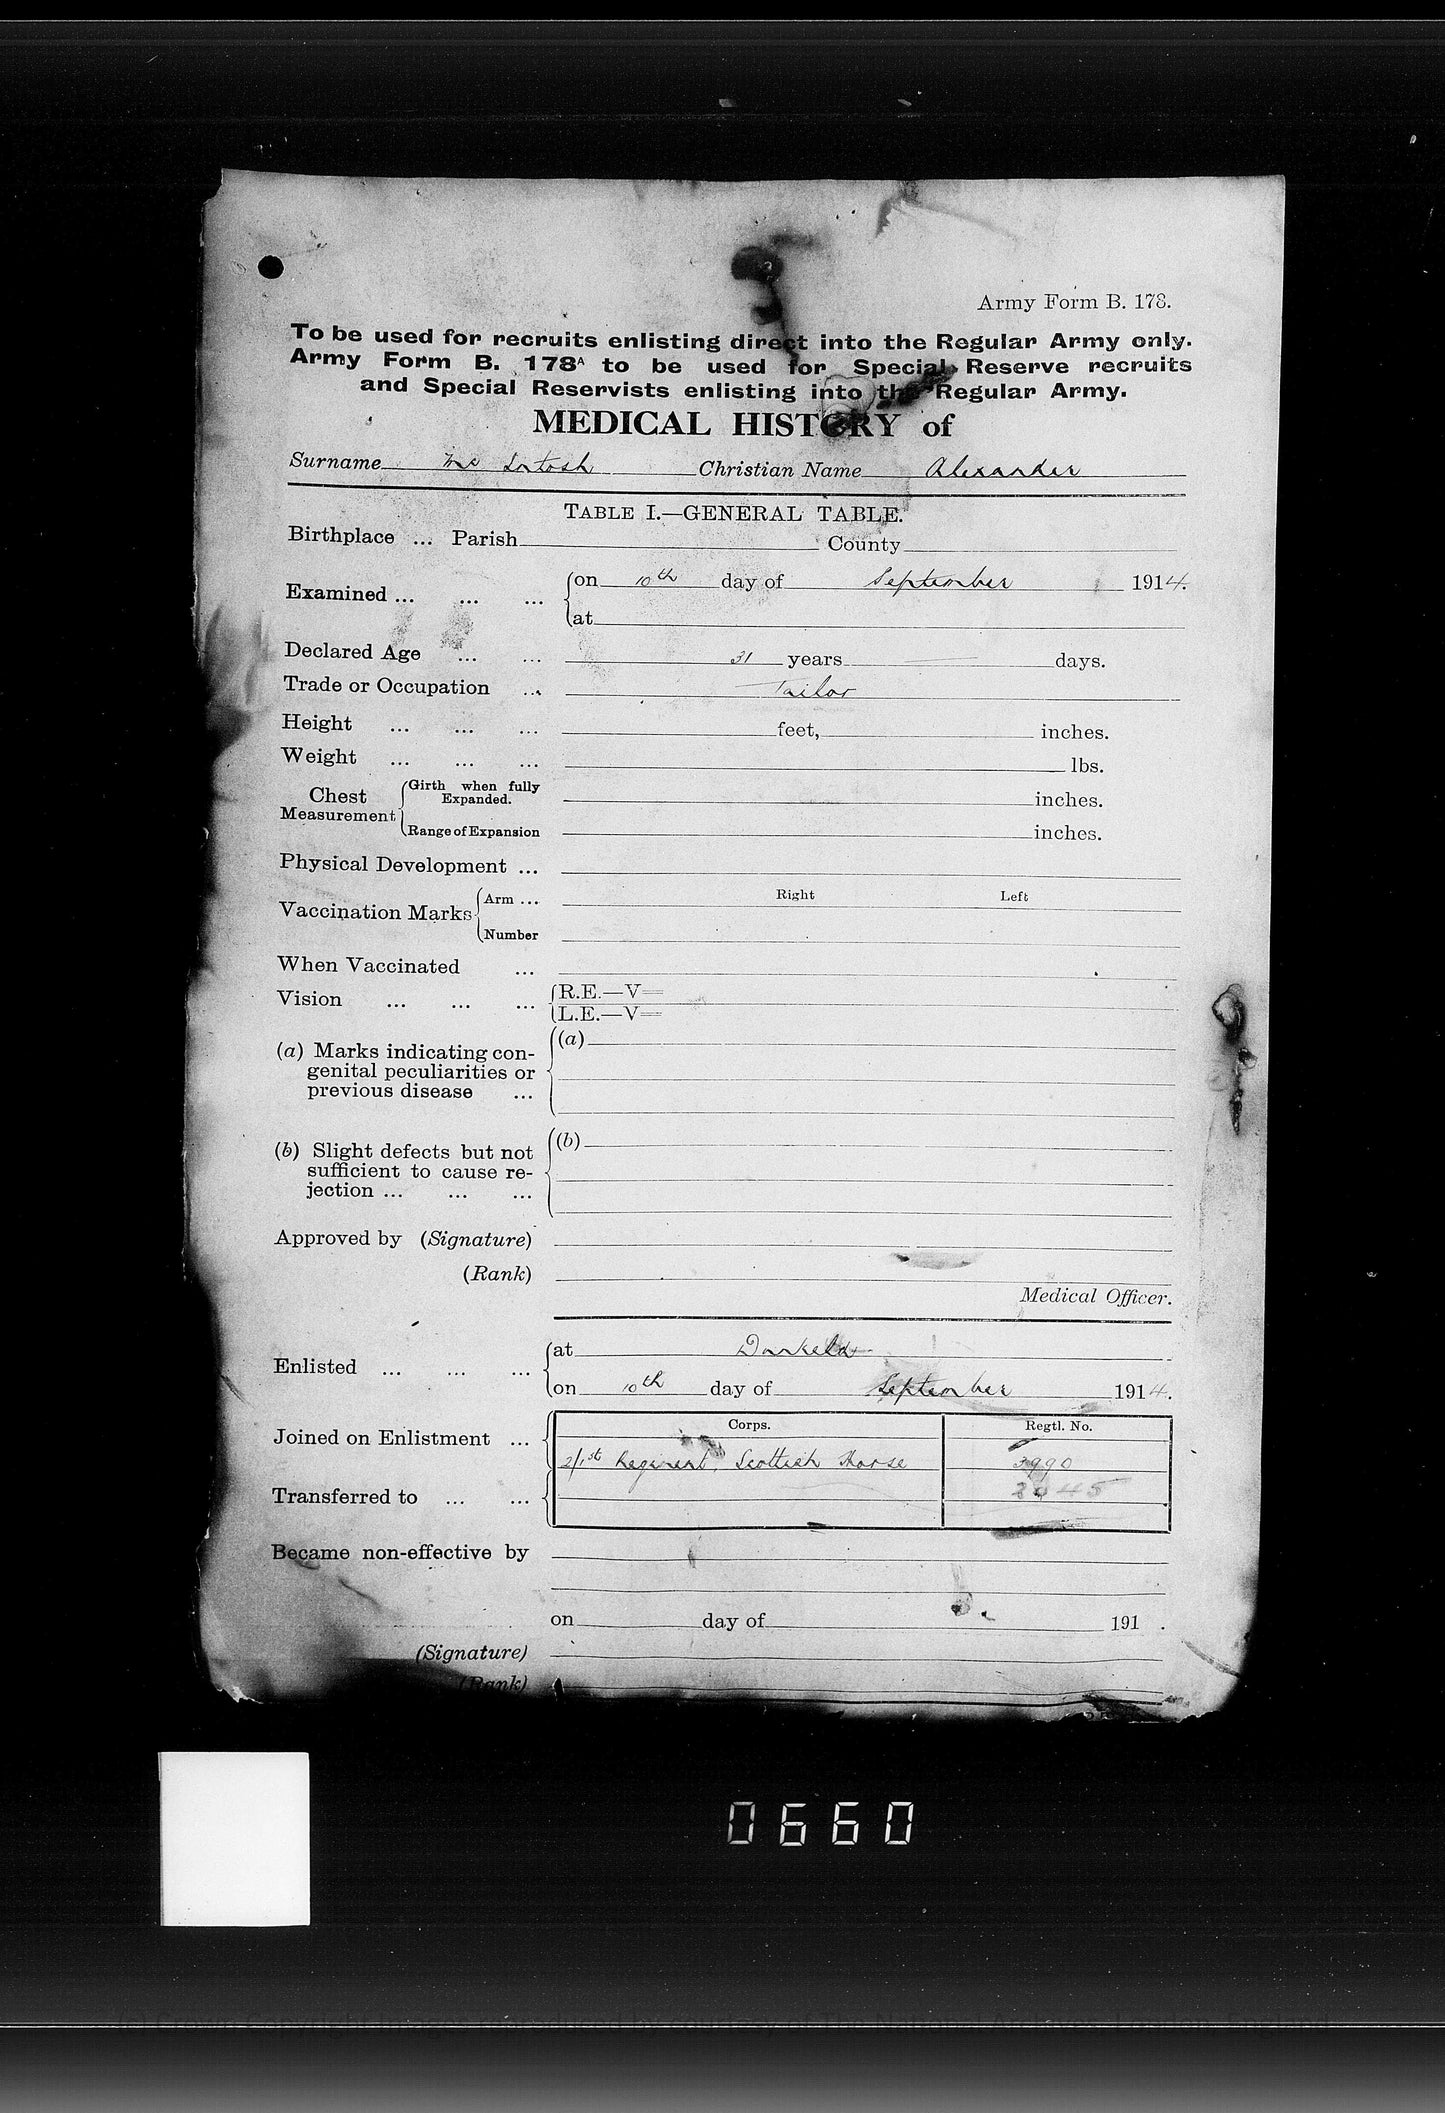 Army Form B. 178.
To be used for recruits enlisting direct into the Regular Army only.
Army Form B. 178A to be used for Special Reserve recruits
and Special Reservists enlisting into the Regular Army.
MEDICAL HISTORY of
Surname Mc Intosh Christian Name Alexander
TABLE I.—GENERAL TABLE.
Birthplace ... Parish County
Examined ... ... ... on 10th day of September 1914.
at
Declared Age ... ... 31 years — days.
Trade or Occupation ... Tailor
Height ... ... ... feet, inches.
Weight ... ... ... lbs.
Chest Measurement Girth when fully Expanded. inches.
Range of Expansion inches.
Physical Development ...
Right Left
Vaccination Marks Arm ...
Number
When Vaccinated ...
Vision ... ... ... R.E.—V=
L.E.—V=
(a) Marks indicating con- (a)
genital peculiarities or
previous disease ...
(b) Slight defects but not (b)
sufficient to cause re-
jection ... ... ...
Approved by (Signature)
(Rank)
Medical Officer.
Enlisted ... ... ... at Dunkeld
on 10th day of September 1914.
Corps. Regtl. No.
Joined on Enlistment ... 2/1st Regiment, Scottish Horse 3990
Transferred to ... ...
Became non-effective by
on day of 191 .
(Signature)
(Rank)
0660
(c) Crown Copyright Images reproduced by courtesy of The National Archives, London, England.